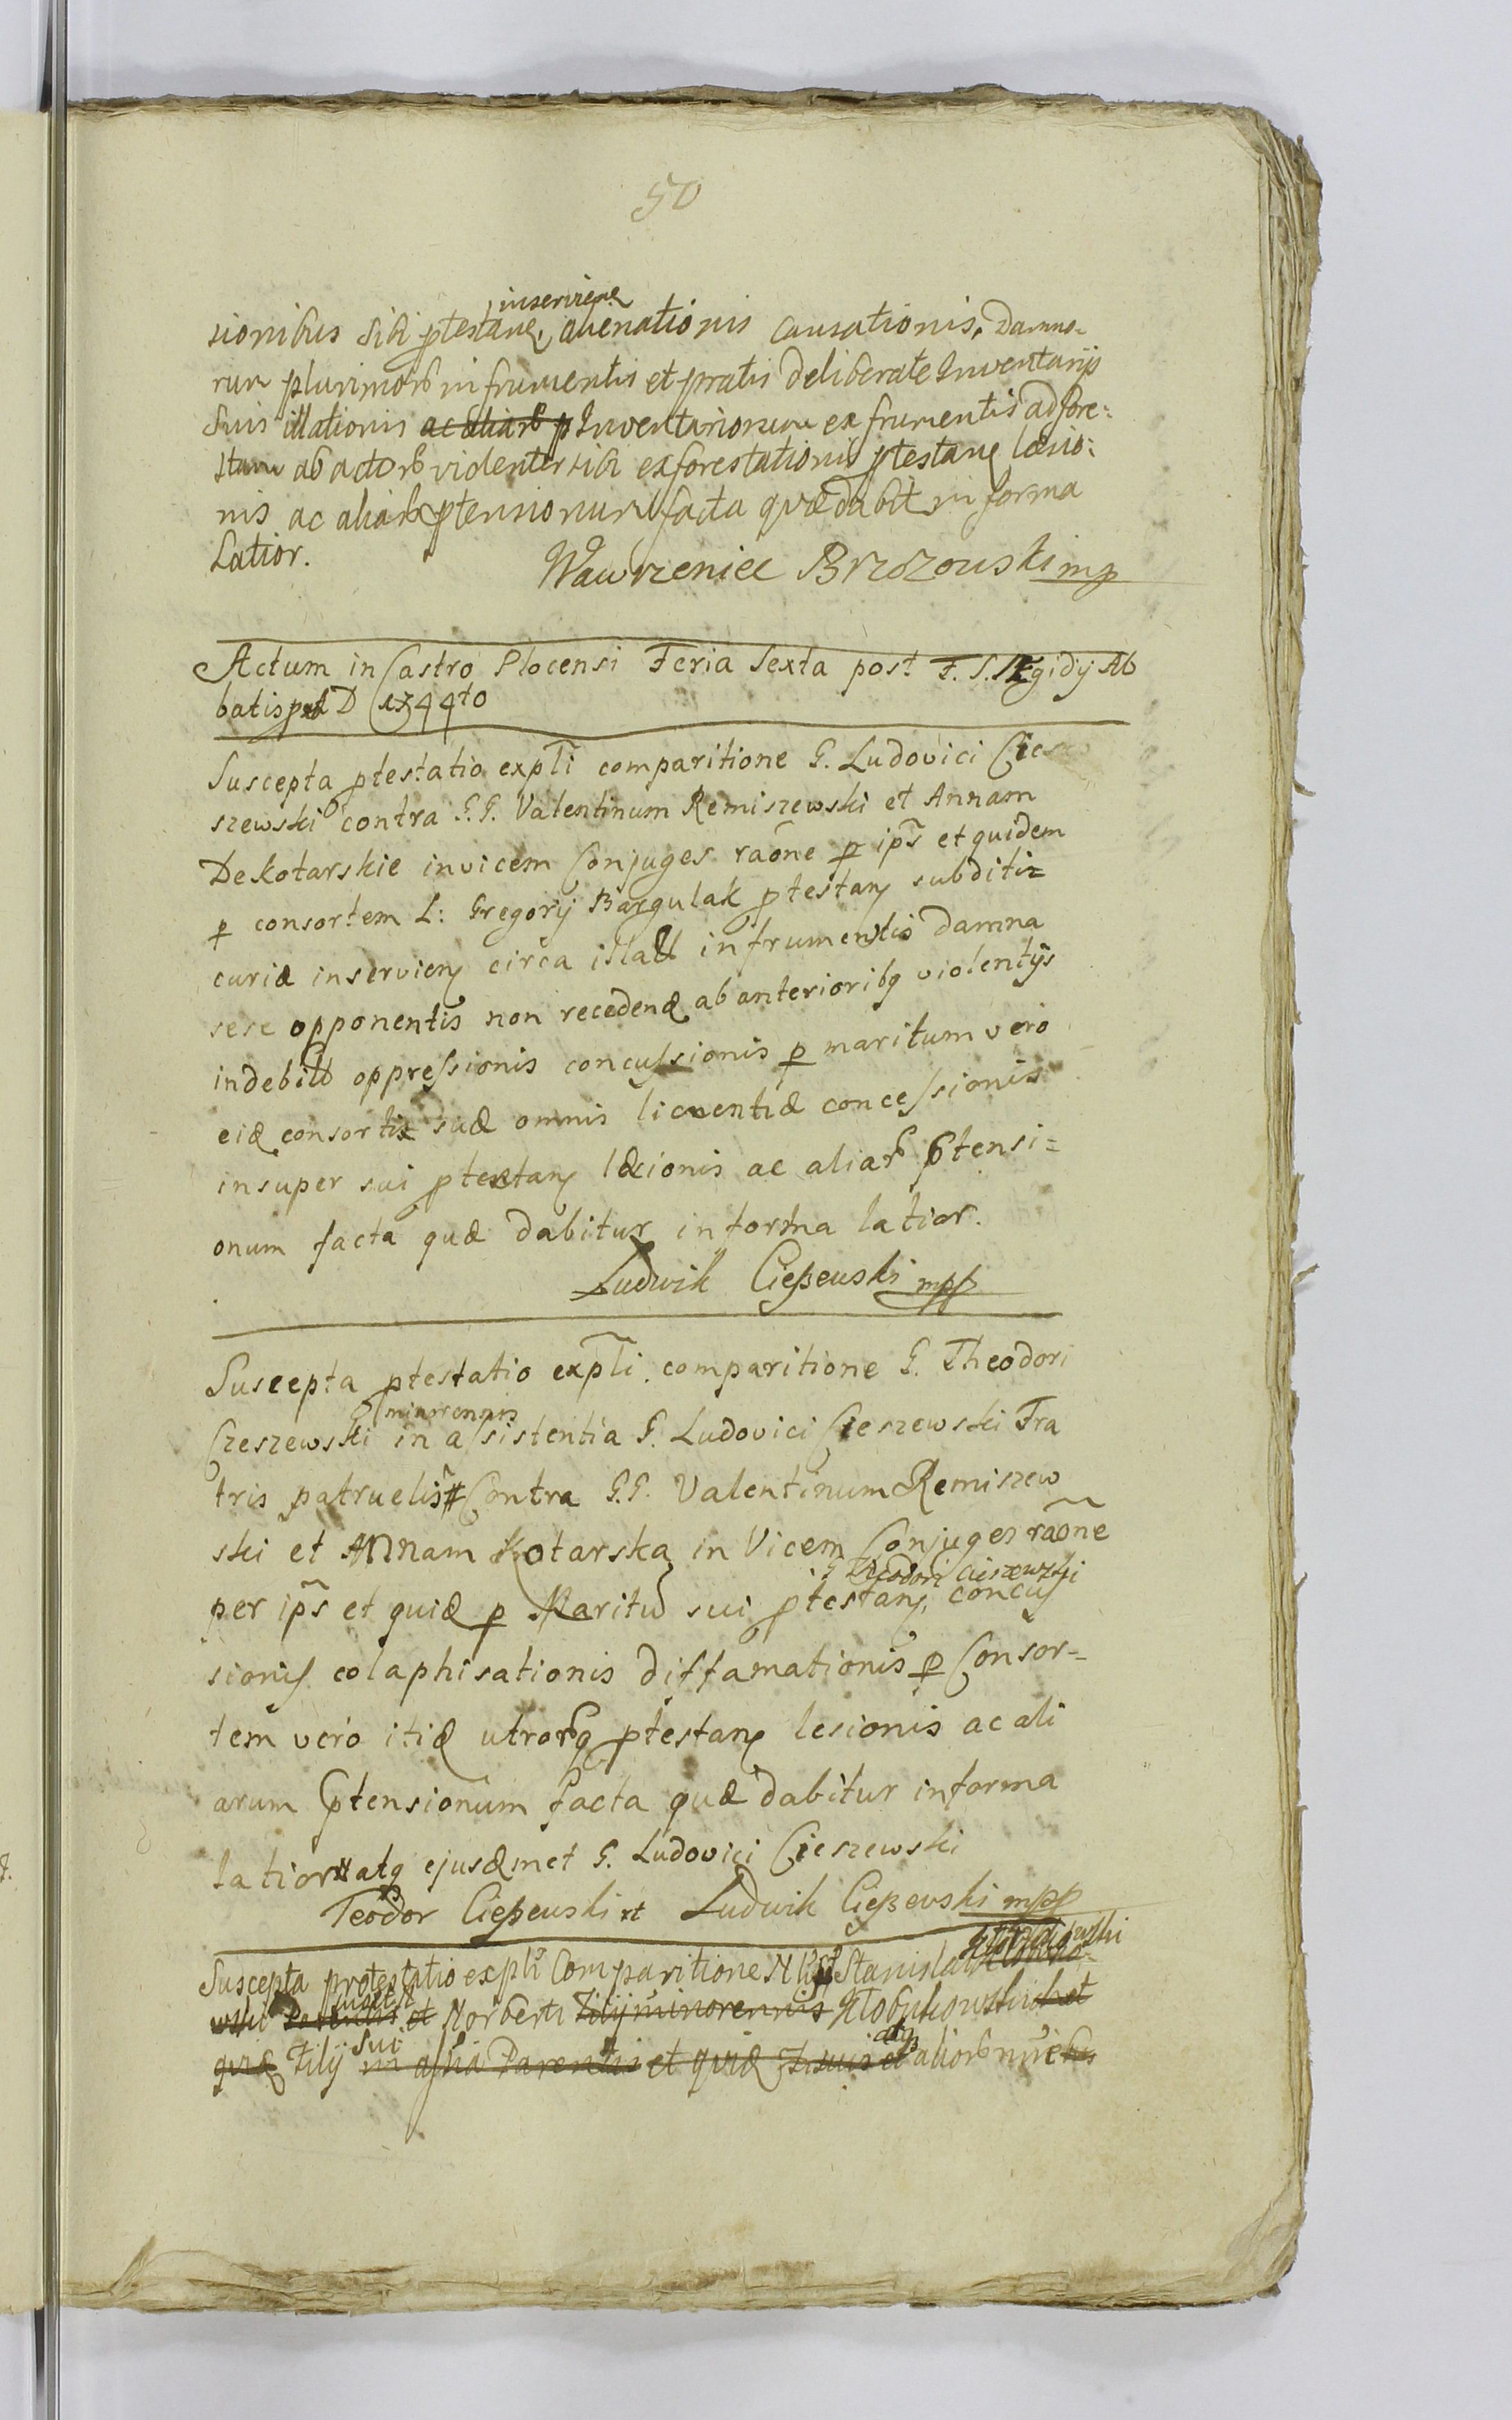 50
inserviene
sionibus sibi ptestane, avenationis causationis, Damno-
rum plurimorb in frumentis et pratis deliberate Inventarijs
suis illationis ac aliarb p Inventariorum ex frumentis ad fore:
stam ab actorb violenter sibi exforestationis ptestane læsio:
nis ac aliarb ptensionum facta quæ dabit in forma
Latior.
Wawrzeniec Brzozouski mp
Actum in Castro Plocensi Feria Sexta post F. S. Ægidij Ab
batis D 1744to
Suscepta ptestatio expli comparitione G. Ludovici Cie
szewski contra G.G. Valentinum Remiszewski et Annam
De Kotarskie invicem Conjuges raone p ips et quidem
p consortem L: Gregorij Bargulak ptestan subditi
curiæ inservien circa illatt in frumentis damna
sese opponentis non recedend ab anterioribq violentijs
indebitt oppressionis concussionis p maritum vero
eid consorti suæ omnis licentiæ concessionis
insuper sui ptestan læsionis ac aliarb ptensi=
onum facta quæ dabitur in forma latior.
Ludwik Cießeuski mpp
Suscepta ptestatio expli comparitione G. Theodori
minorennis
Czeszewski in assistentia G. Ludovici Cieszewski Fra
tris patruelis # Contra G.G. Valentinum Remiszew
ski et Annam Kotarska in Vicem Conjuges raone
G Theodori Cieszewski
per ips et quid p Maritu sui ptestan, concus
sionis colaphisationis diffamationis p Consor-
tem vero itid utrorbq ptestan lesionis ac ali
arum ptensionum facta quæ dabitur in forma
latior # atq ejusdmet G. Ludovici Cieszewski
Teodor Cießeuski et Ludwik Cießevski mpp
Suscepta protestatio expli Comparitione Stanislai
Parentis et Norberti Filij minorennis Klobukowskich et
sui atq
quid Filij in assia Parentis et quid Fr suis et aliorb